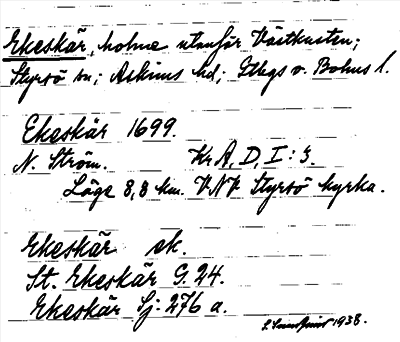 Ekeskär, holme utanför Västkusten;
Styrsö sn; Askims hd; Gbgs o. Bohus l.
Ekeskär 1699.
N. Ström. KrA, D, I: 3.
Läge 8,8 km. VNV. Styrsö kyrka.
Ekeskär ek.
St. Ekeskär G. 24.
Ekeskär Sj: 276 a.
1938.